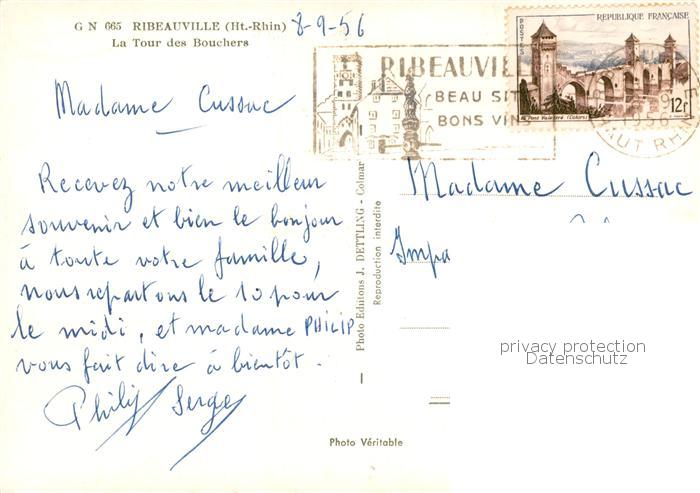 G N 665 RIBEAUVILLE (Ht.-Rhin)
La Tour des Bouchers
8-9-56
Madame Cussac
Recevez notre meilleur
souvenir et bien le bonjour
à toute votre famille,
nous repartons le 10 pour
le midi, et madame PHILIP
vous fait dire à bientôt.
Philip Serge
Photo Editons J. DETTLING - Colmar
Reproduction interdite
Photo Véritable
RIBEAUVI
BEAU SIT
BONS VINS
POSTES
REPUBLIQUE FRANÇAISE
Pont Valentré (Cahors)
12F
9
1956
HAUT RHIN
Madame Cussac
Impa
privacy protection
Datenschutz